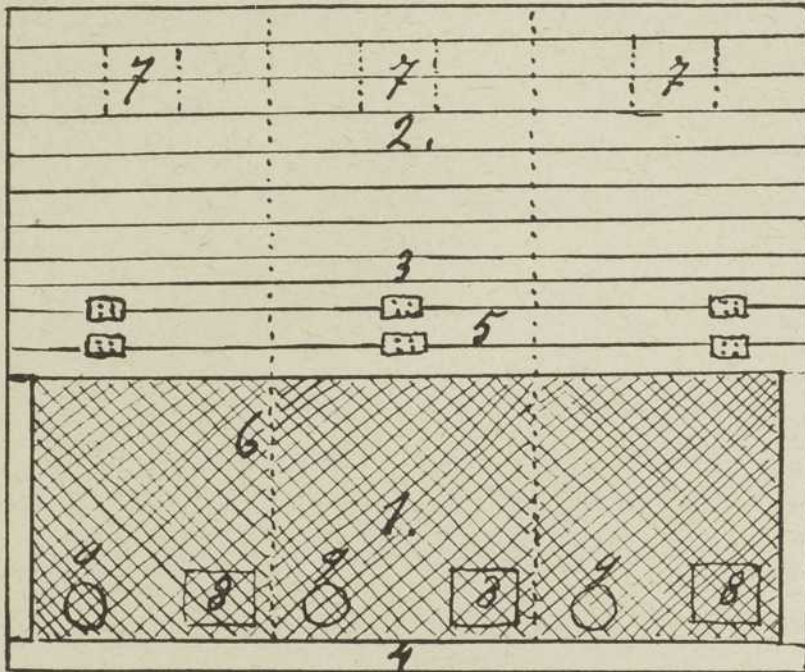 7 7 7
2.
3
5
6
1.
9 9 9
8 8 8
4